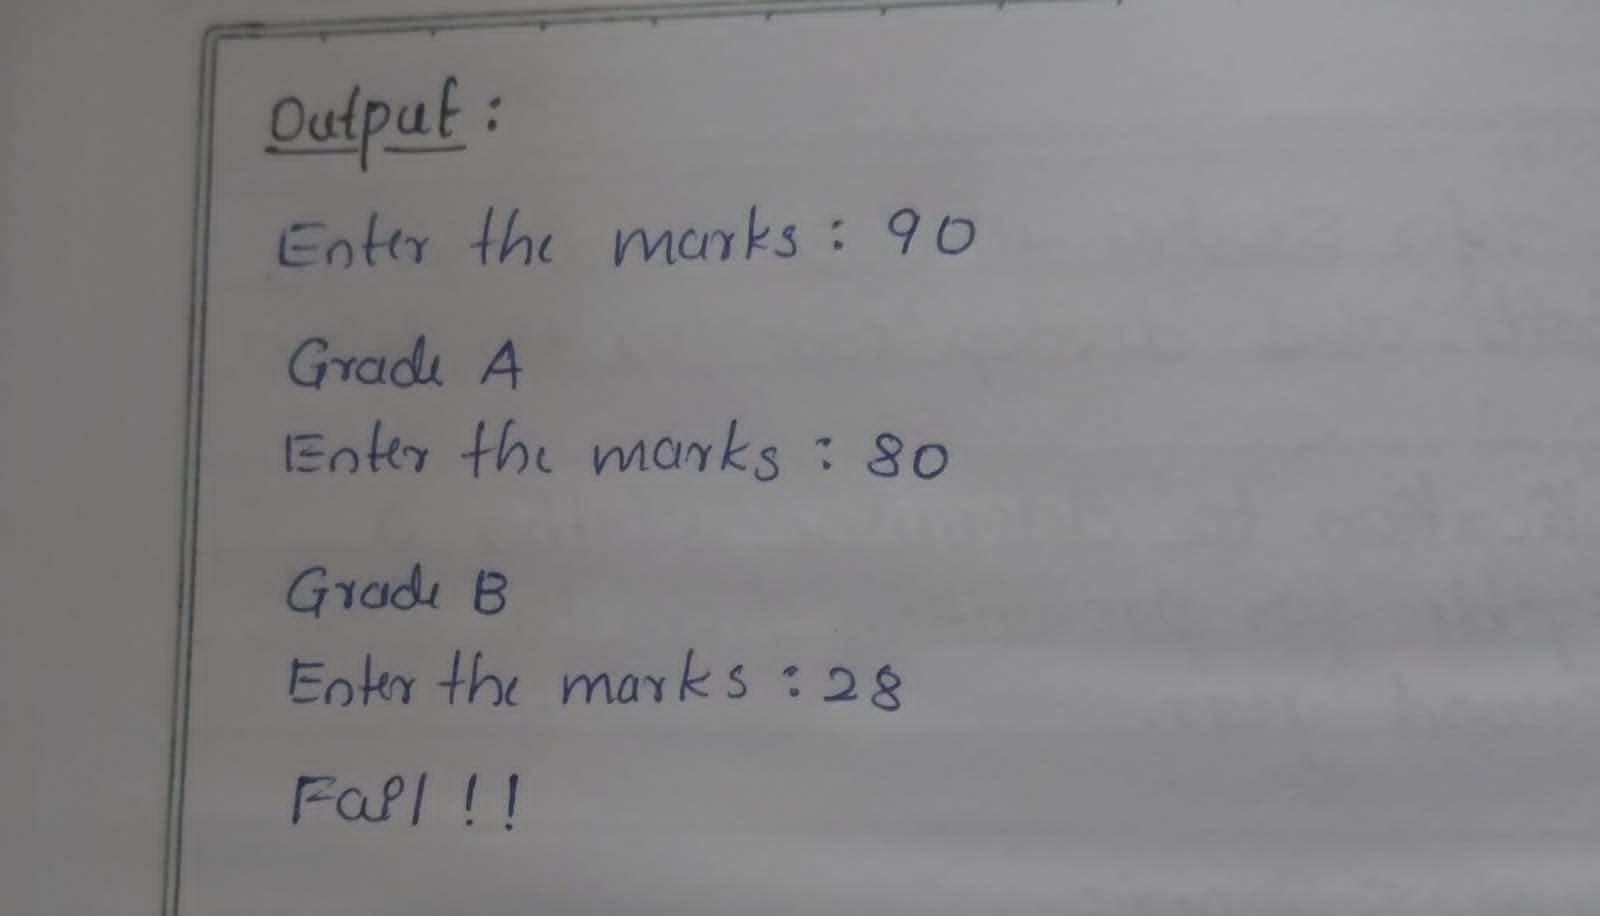 Output :
Enter the marks : 90
Grade A
Enter the marks : 80
Grade B
Enter the marks : 28
Fail !!